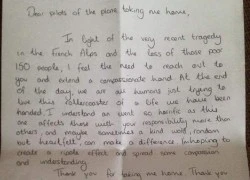 Dear pilots of the plane taking me home,
In light of the very recent tragedy
in the French Alps and the loss of those poor
150 people, I feel the need to reach out to
you and extend a compassionate hand. At the end
of the day, we are all humans just trying to
live this rollercoaster of a life we have been
handed. I understand an event so horrific as this
one affects those with you responsibility more than
others, and maybe sometimes a kind word, random
but heartfelt, can make a difference. I'm hoping to
create a ripple effect and spread some compassion
and understanding.
Thank you for taking me home. Thank you